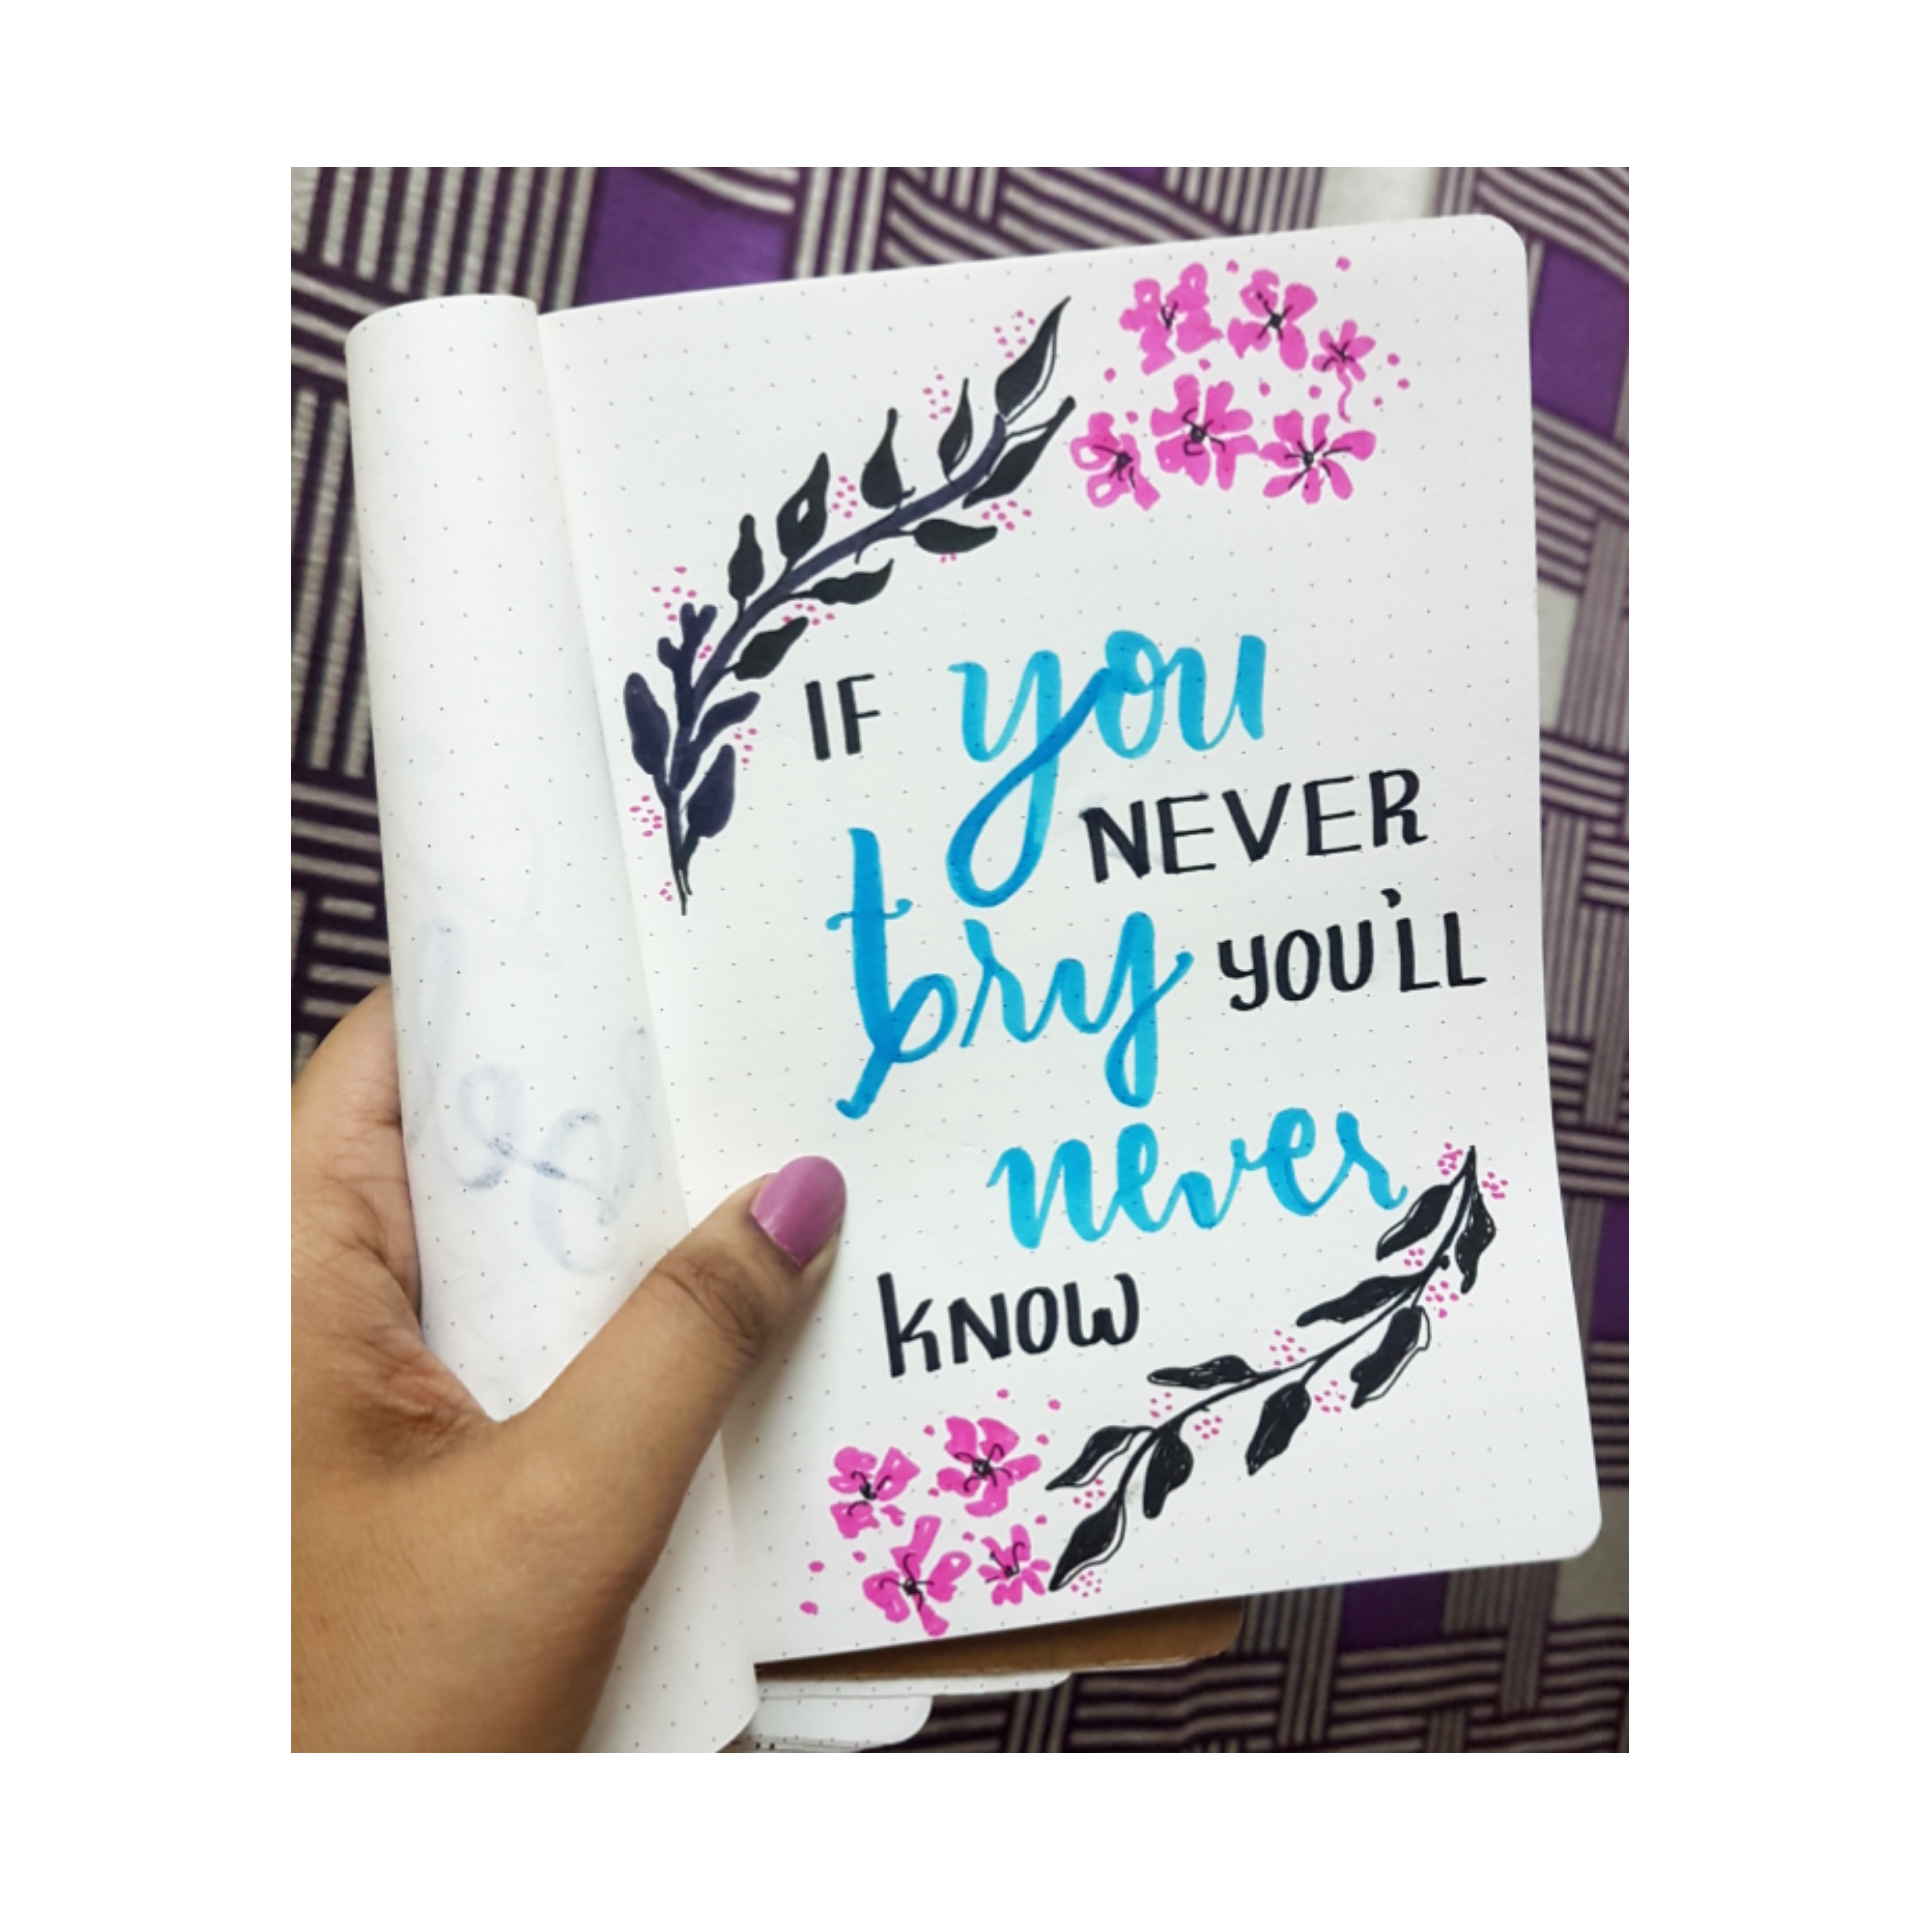 IF you
NEVER
try YOU'LL
never
KNOW